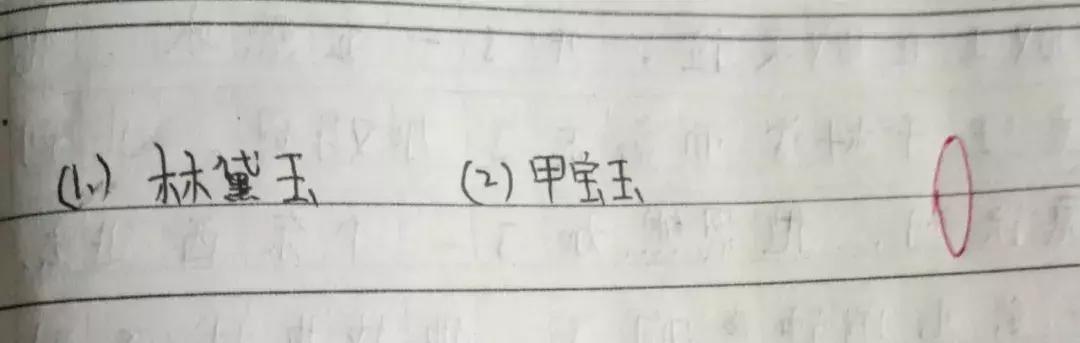 (1、) 林黛玉 (2) 甲宝玉